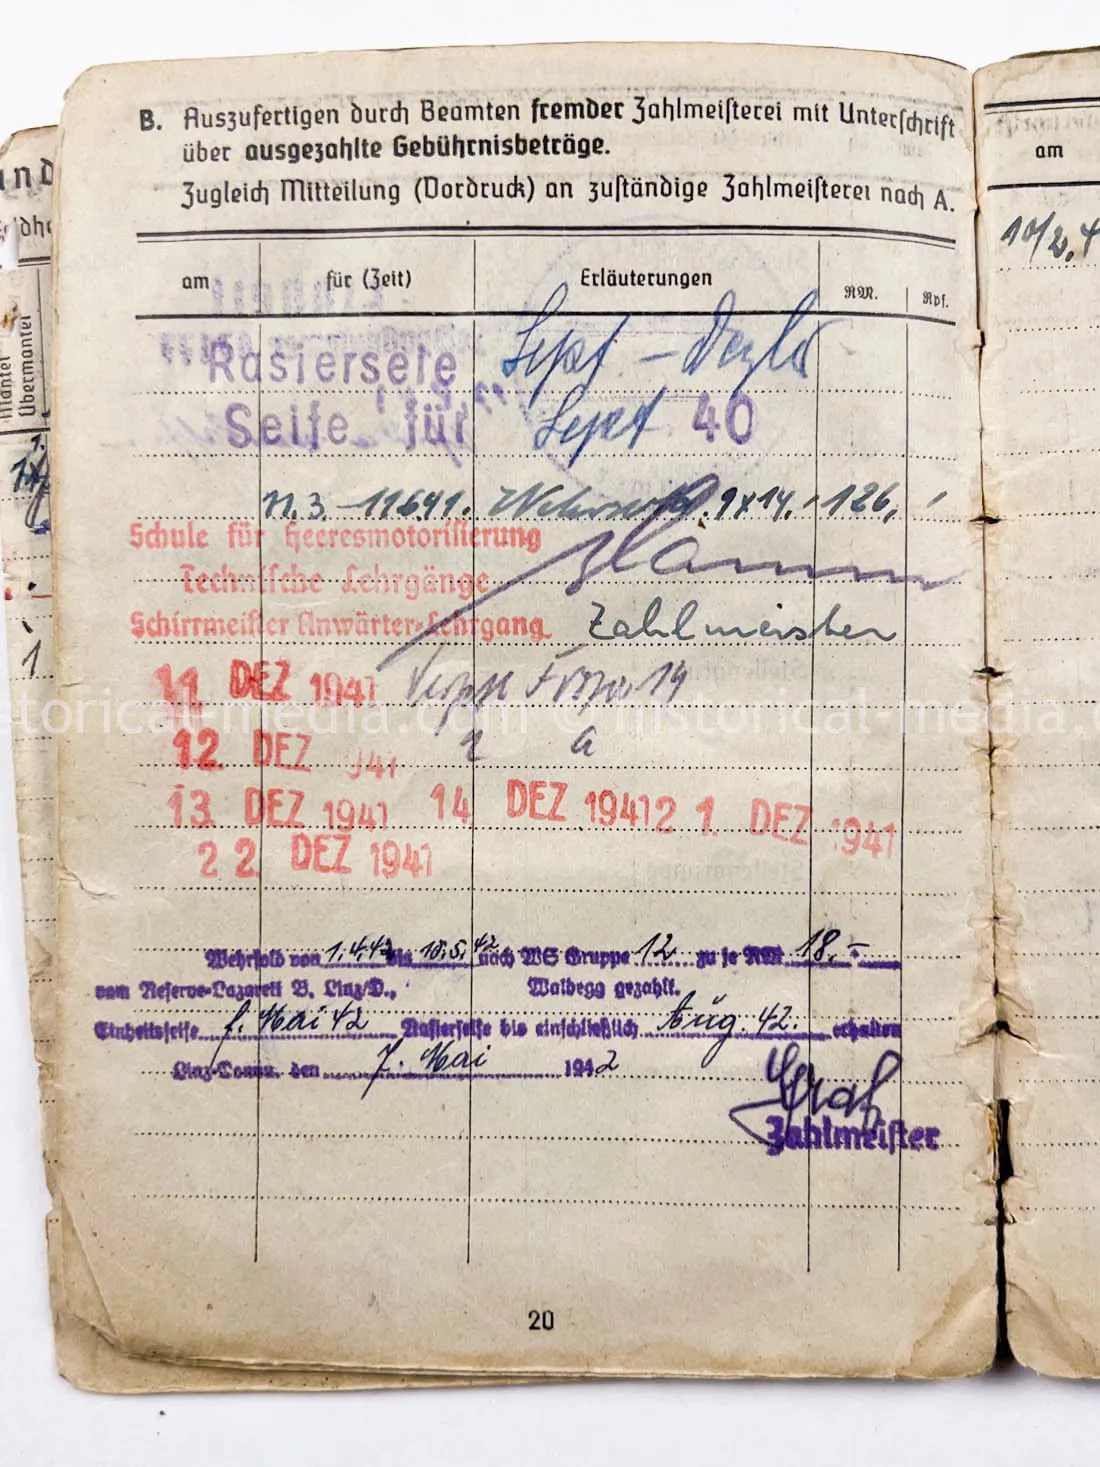 B. Auszufertigen durch Beamten fremder Zahlmeisterei mit Unterschrift
über ausgezahlte Gebührnisbeträge.
Zugleich Mitteilung (Vordruck) an zuständige Zahlmeisterei nach A.
am für (Zeit) Erläuterungen RM. Rpf.
Rasierseife Sept –
Seife für Sept 40
11.3.-11.6.41. 9x14. 126,
Schule für Heeresmotorisierung
Technische Lehrgänge
Schirrmeister Anwärter-Lehrgang
Zahlmeister
11 DEZ 1941
12. DEZ 1941
13. DEZ 1941 14 DEZ 1941 21. DEZ 1941
22. DEZ 1941
Wehrsold von 1.4.42 bis 10.5.42 nach WS Gruppe 12 zu je RM 18.-
vom Reserve-Lazarett B. Linz/D., Waldegg gezahlt.
Einheitsseife f. Mai 42 Rasierseife bis einschließlich Aug. 42. erhalten
Linz-Donau, den 7. Mai 1942
Graf
Zahlmeister
20
am
10/2.4
Übermantel
historical-media.com © historical-media.com